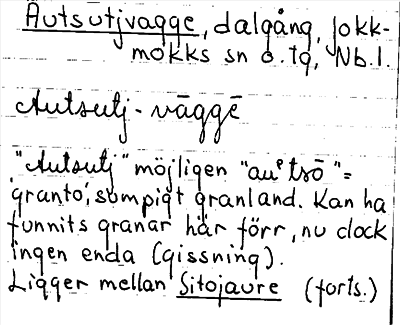 Autsutjvagge, dalgång, Jokk-
mokks sn o. tg, Nb.l.
Autsutj-vāggē
"Autsutj" möjligen "auᵒtsō"=
'granto', sumpigt granland. Kan ha
funnits granar här förr, nu dock
ingen enda (gissning).
Ligger mellan Sitojaure (forts.)